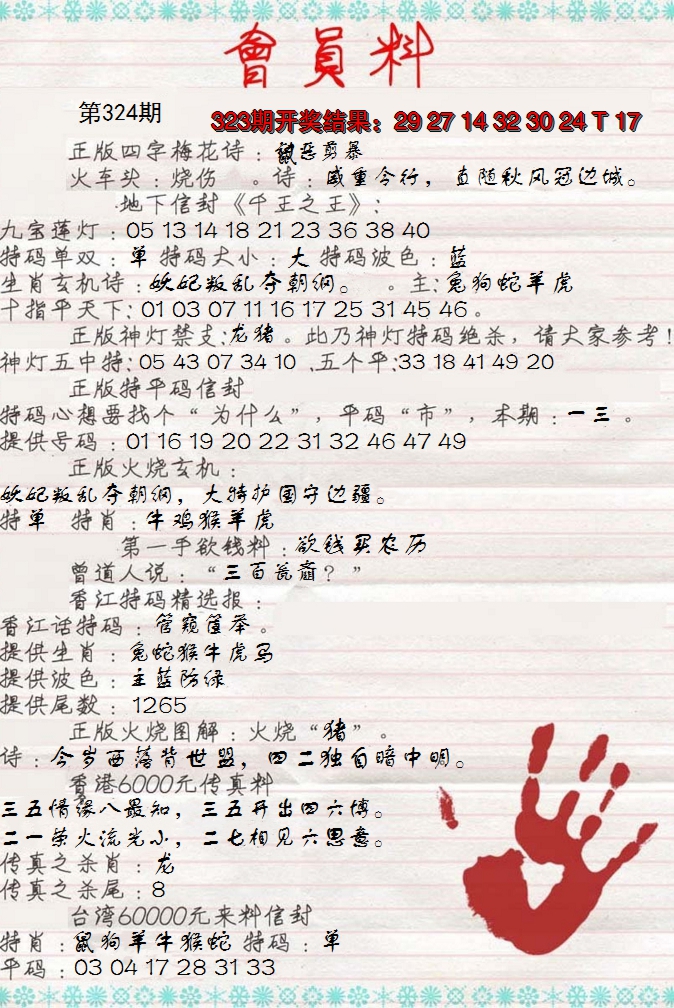 會員料
第324期
323期开奖结果：29 27 14 32 30 24 T 17
正版四字梅花诗：鼠恶剪暴
火车头：烧伤 。诗：威重令行，直随秋风冠边城。
地下信封《千王之王》：
九宝莲灯：05 13 14 18 21 23 36 38 40
特码单双：单 特码大小：大 特码波色：蓝
生肖玄机诗：妖妃叛乱夺朝纲。 。主：兔狗蛇羊虎
十指平天下：01 03 07 11 16 17 25 31 45 46。
正版神灯禁支：龙猪。此乃神灯特码绝杀，请大家参考！
神灯五中特：05 43 07 34 10 .五个平：33 18 41 49 20
正版特平码信封
特码心想要找个“为什么”，平码“市”，本期：一三。
提供号码：01 16 19 20 22 31 32 46 47 49
正版火烧玄机：
妖妃叛乱夺朝纲，大将护国守边疆。
特单 特肖：牛鸡猴羊虎
第一手欲钱料：欲钱买农历
曾道人说：“三百瓮齑？”
香江特码精选报：
香江话特码：管窥筐举。
提供生肖：兔蛇猴牛虎马
提供波色：主蓝防绿
提供尾数：1265
正版火烧图解：火烧“猪”。
诗：今岁西落背世盟，四二独自暗中明。
香港6000元传真料
三五情缘八最知，三五开出四六博。
二一荣火流光小，二七相见六思意。
传真之杀肖：龙
传真之杀尾：8
台湾60000元来料信封
特肖：鼠狗羊牛猴蛇 特码：单
平码：03 04 17 28 31 33